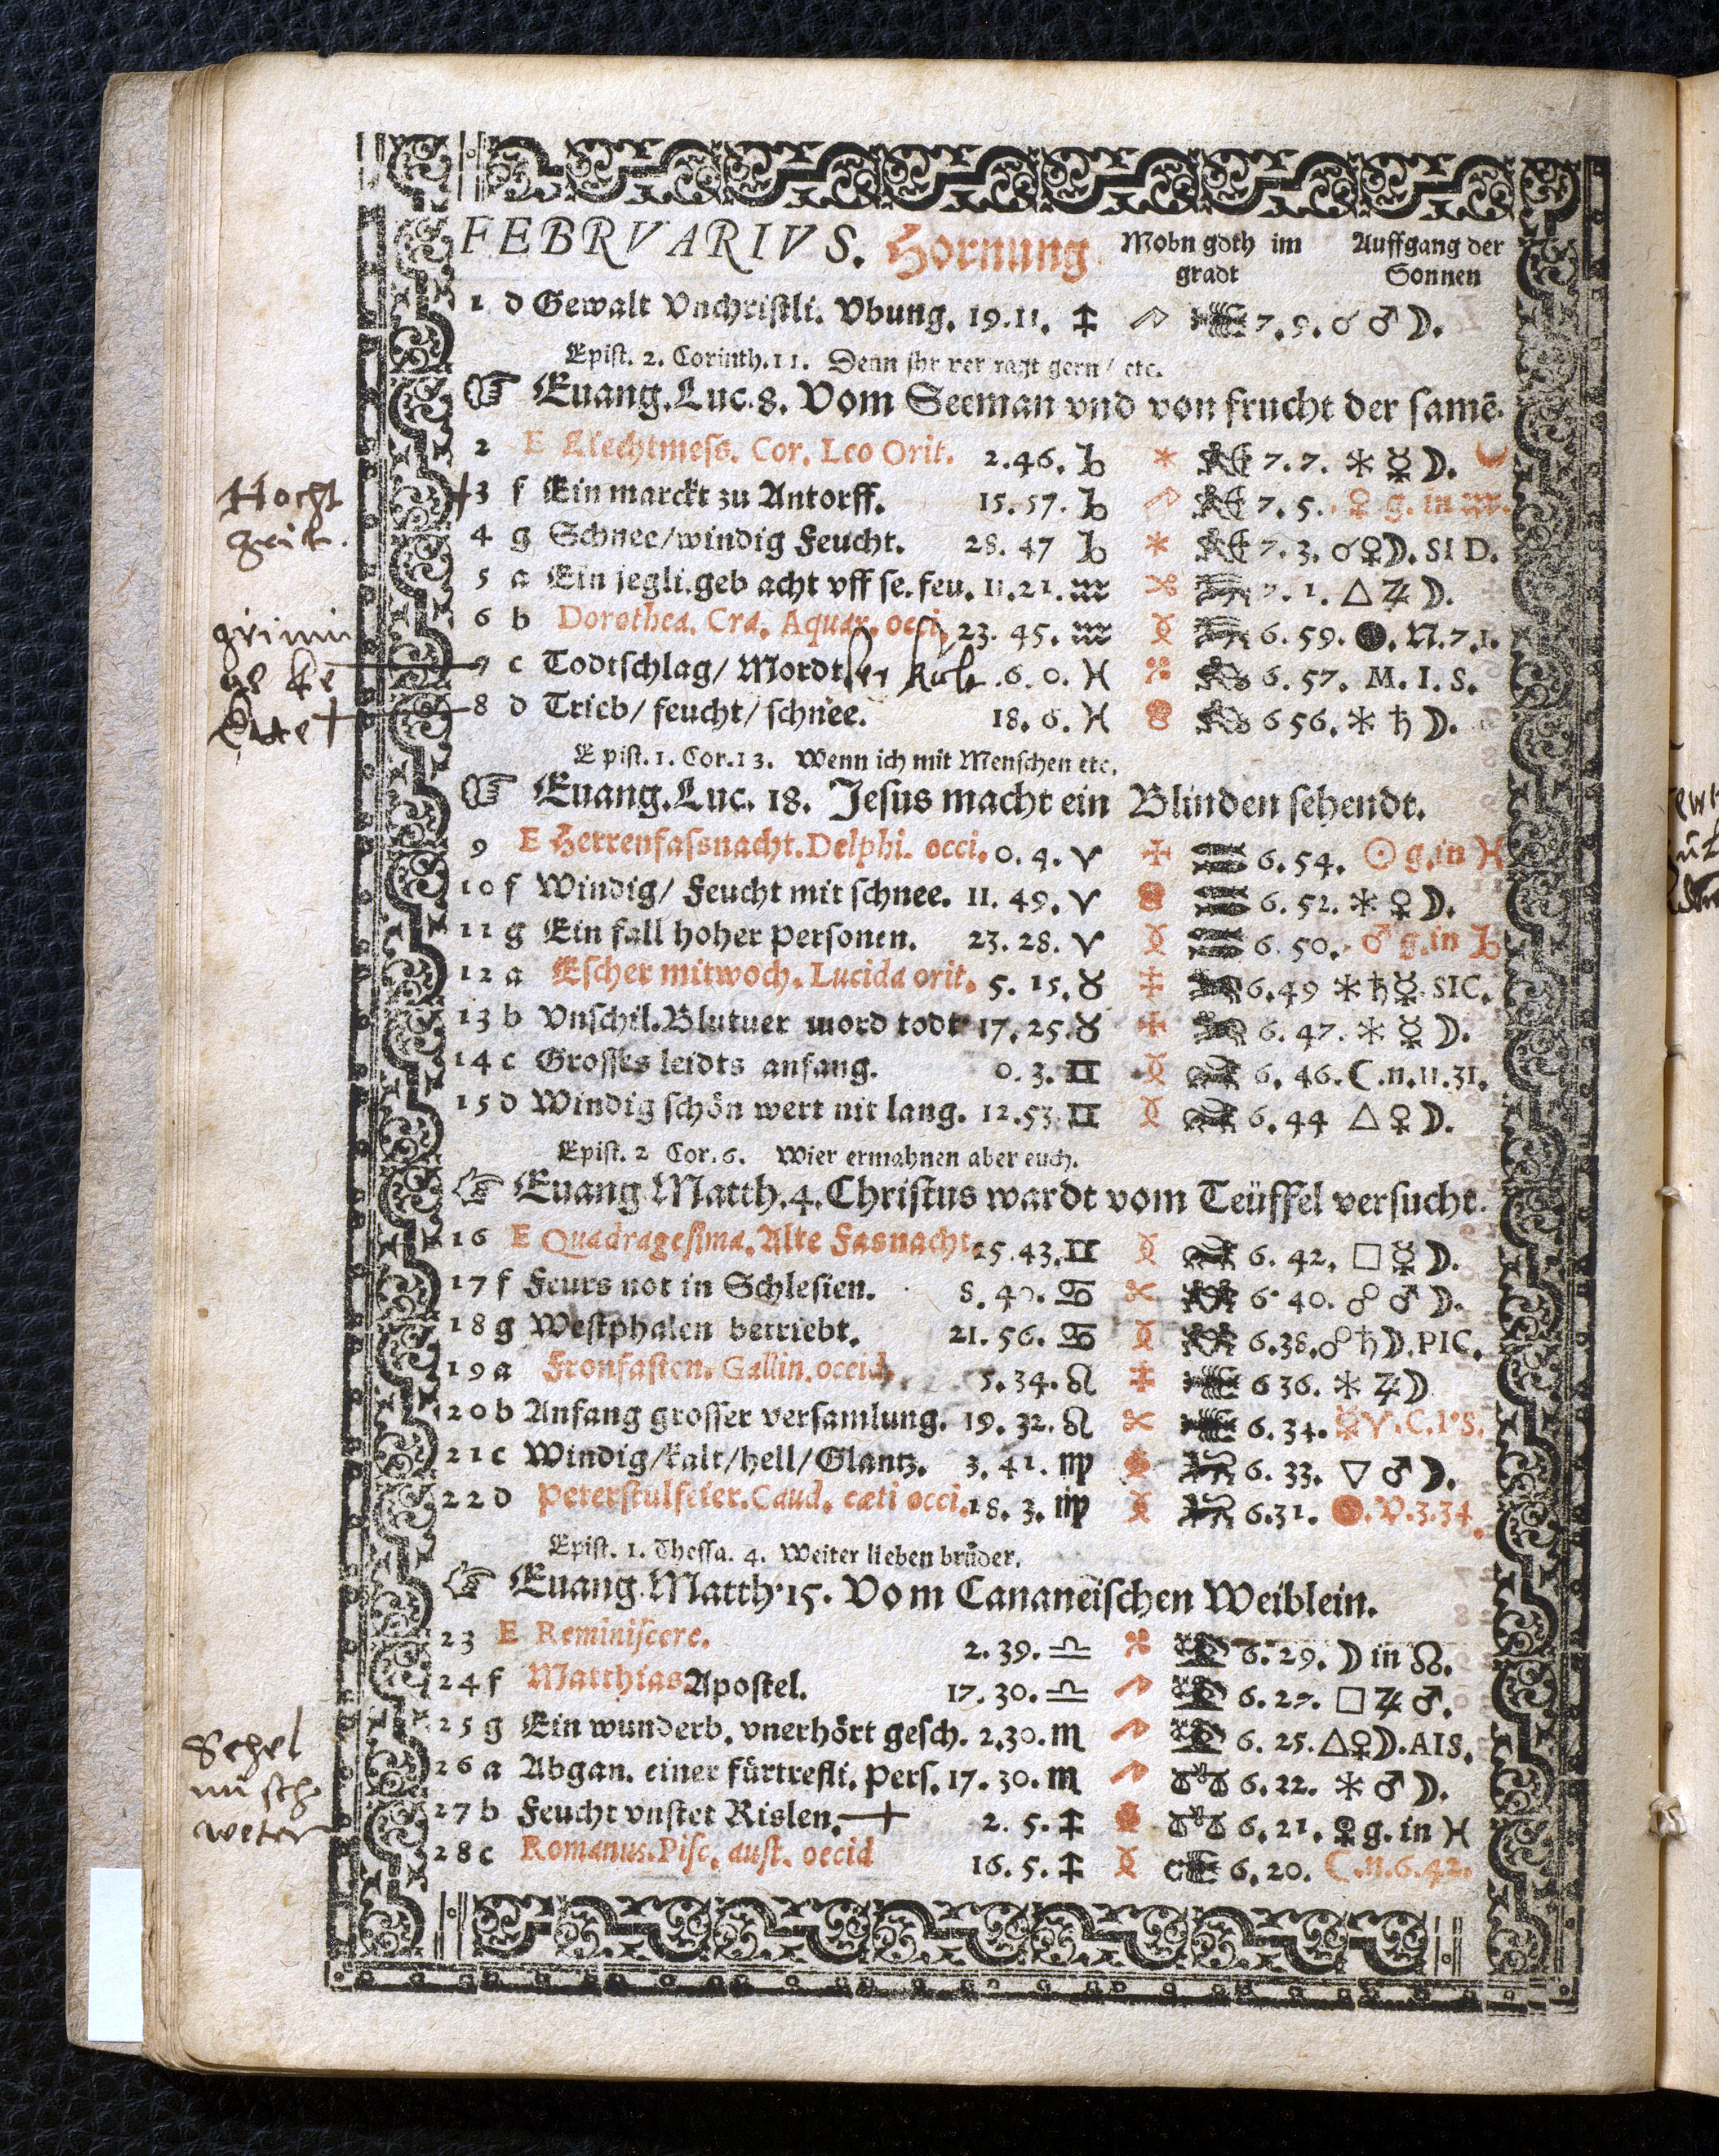 FEBRVARIVS. Hornung Mohn goth im gradt Auffgang der Sonnen
1 d Gewalt Vnchristli. Vbung. 19.11. ♐ 7.9. ☌ ♂ ☽.
Epist. 2. Corinth.11. Denn ihr ver ragt gern/ etc.
☞ Euang.Luc.8. Vom Seeman vnd von frucht der samē.
2 E Liechtmess. Cor. Leo Orit. 2.46. ♑ 7.7. ⚹ ☿ ☽.
Hocht
3 f Ein marckt zu Antorff. 15.57. ♑ 7.5. ♀ g. in ♒.
zeit.
4 g Schnee/windig Feucht. 28.47 ♑ 7.3. ☌♀☽. SI D.
5 a Ein jegli.geb acht vff se.feu. 11.21. ♒ 7.1. △ ♃ ☽.
6 b Dorothea. Cra. Aquar. occi. 23.45. ♒ 6.59. ●. N.7.1.
7 c Todtschlag/ Mordt 6.0. ♓ 6.57. M. I. S.
8 d Trieb/ feucht/ schnee. 18.6. ♓ 6 56. ⚹ ♄ ☽.
Epist. 1. Cor.13. Wenn ich mit Menschen etc.
☞ Euang.Luc. 18. Jesus macht ein Blinden sehendt.
9 E Herrenfassnacht.Delphi. occi. 0.4. ♈ 6.54. ☉ g.in ♓
10 f Windig/ Feucht mit schnee. 11.49. ♈ 6.52. ⚹ ♀ ☽.
11 g Ein fall hoher personen. 23.28. ♈ 6.50. ♂ g.in ♑
12 a Escher mitwoch. Lucida orit. 5.15. ♉ 6.49 ⚹ ♄ ☿. SIC.
13 b Vnschil.Blutuer mord todt 17.25. ♉ 6.47. ⚹ ☿ ☽.
14 c Grosses leidts anfang. 0.3. ♊ 6.46. ☾.n.11.31.
15 d Windig schön wert nit lang. 12.53. ♊ 6.44 △ ♀ ☽.
Epist. 2 Cor. 6. Wier ermahnen aber euch.
☞ Euang.Matth.4. Christus wardt vom Teüffel versucht.
16 E Quadragesima. Alte Fasnacht. 25.43. ♊ 6.42. □ ☿ ☽.
17 f Feurs not in Schlesien. 8.40. ♋ 6.40. ☍ ♂ ☽.
18 g Westphalen betriebt. 21.56. ♋ 6.38. ☍ ♄ ☽. PIC.
19 a Fronfasten. Gallin. occid. 5.34. ♌ 6 36. ⚹ ♃ ☽
20 b Anfang grosser versamlung. 19.32. ♌ 6.34. ☿ ♈. C.I.S.
21 c Windig/kalt/hell/Glantz. 3.41. ♍ 6.33. ▽ ♂ ☽.
22 d Peterstulfeier. Caud. cæti occi. 18.3. ♍ 6.31. V.3.34.
Epist. 1. Thessa. 4. Weiter lieben brüder.
☞ Euang.Matth.15. Vom Cananeischen Weiblein.
23 E Reminiscere. 2.39. ♎ 6.29. ☽ in ☊.
24 f Matthias Apostel. 17.30. ♎ 6.27. □ ♃ ♂.
25 g Ein wunderb. vnerhört gesch. 2.30. ♏ 6.25. △♀☽. AIS.
26 a Abgan. einer fürtrefli. pers. 17.30. ♏ 6.22. ⚹ ♂ ☽.
weter
27 b Feucht vnstet Rislen. 2.5. ♐ 6.21. ☿ g. in ♓
28 c Romanus. Pisc. aust. occid 16.5. ♐ 6.20. ☾.n.6.42.